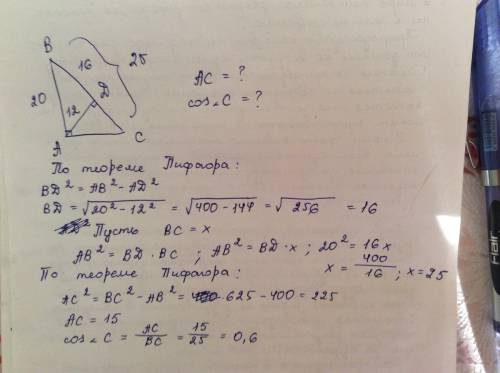 B
16
25
20
12
D
A
C
AC = ?
cos∠C = ?
По теореме Пифагора:
BD² = AB² - AD²
BD = √20² - 12² = √400 - 144 = √256 = 16
Пусть BC = x
AB² = BD · BC ; AB² = BD · x ; 20² = 16x
x = 400/16 ; x = 25
По теореме Пифагора:
AC² = BC² - AB² = 625 - 400 = 225
AC = 15
cos∠C = AC/BC = 15/25 = 0,6
Hair